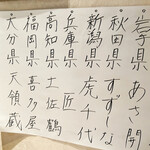 岩手県 あさ開
秋田県 すずな
新潟県 虎千代
兵庫県 匠
高知県 土佐鶴
福岡県 喜多屋
大分県 大領蔵